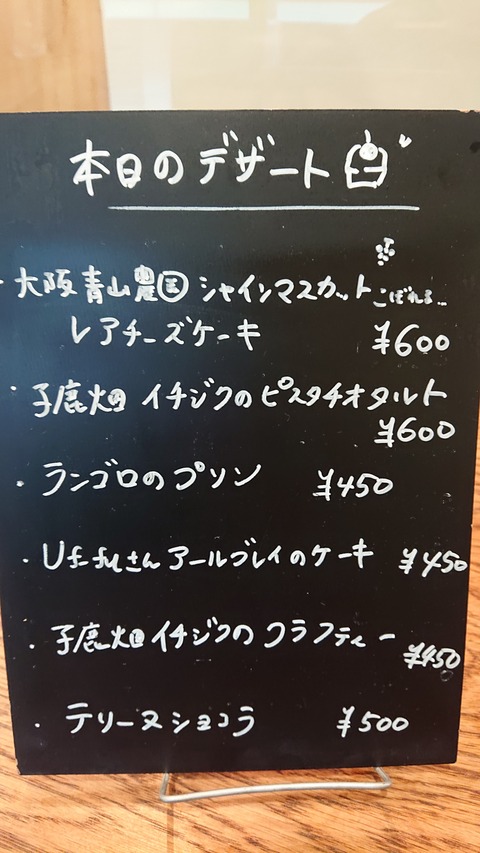 本日のデザート
・大阪青山農園 シャインマスカットこぼれる…
レアチーズケーキ ¥600
・子鹿畑 イチジクのピスタチオタルト
¥600
・ランゴロのプリン ¥450
・Uf-fuさんアールグレイのケーキ ¥450
・子鹿畑イチジクのクラフティー
¥450
・テリーヌショコラ ¥500